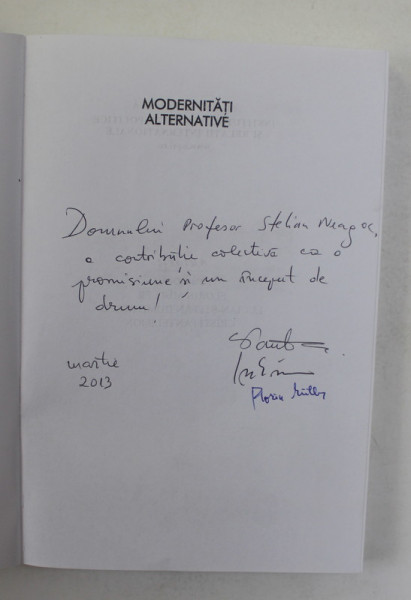 MODERNITĂȚI
ALTERNATIVE
Domnului Profesor Stelian Neagoe,
o contribuție colectivă ca o
promisiune și un început de
drum!
martie
2013
Florin